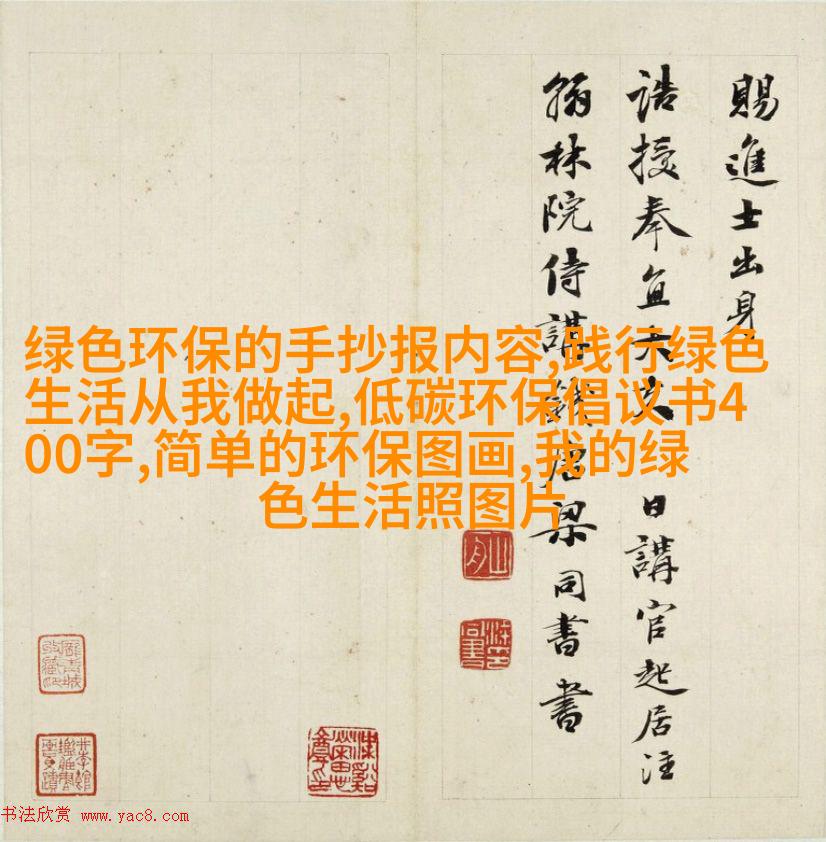 赐進士出身
誥授奉直大夫 日講官起居注
翰林院侍講錢唐梁同書書
绿色环保的手抄报内容,践行绿色
生活从我做起,低碳环保倡议书4
00字,简单的环保图画,我的绿
色生活照图片
书法欣赏 www.yac8.com